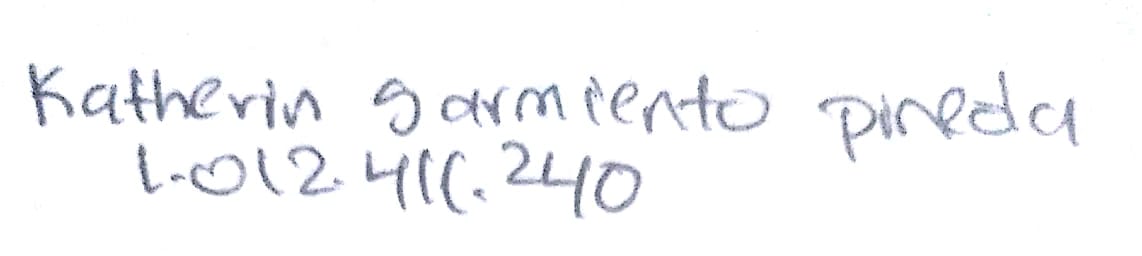 Katherin Sarmiento pineda
1.012.411.240